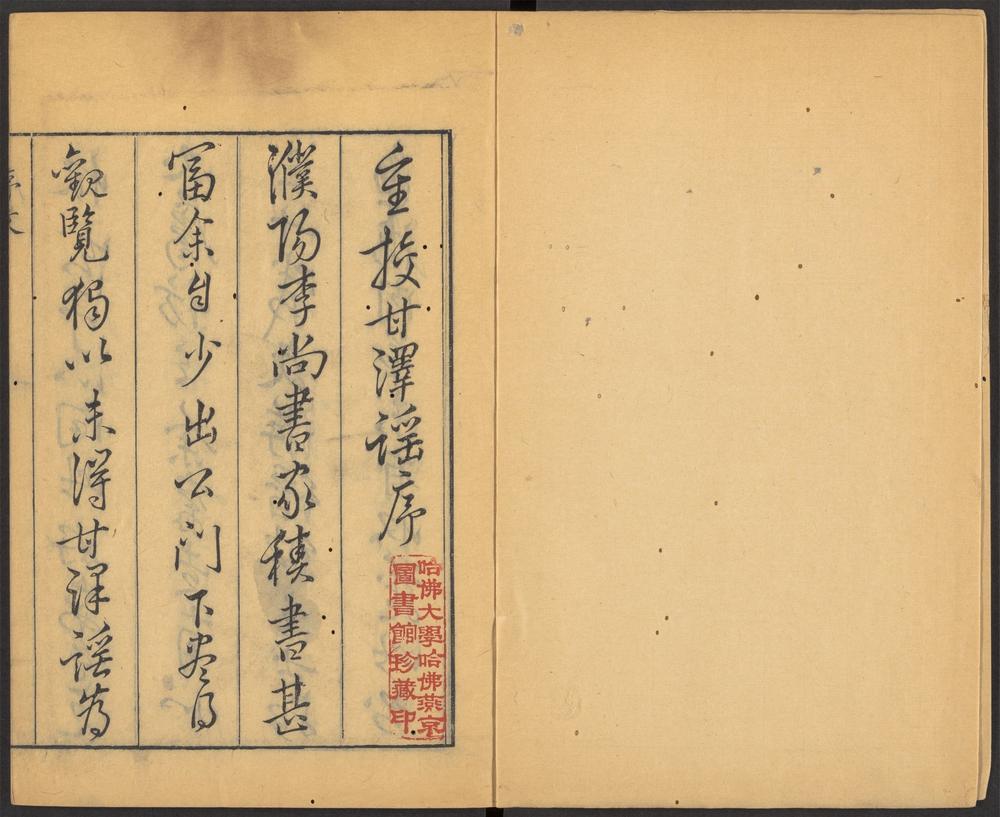 重挍甘澤謡序
濮陽李尚書家積書甚
富余自少出公门下盡得
觀覽獨以未得甘澤謡為
哈佛大學哈佛燕京
圖書館珍藏印